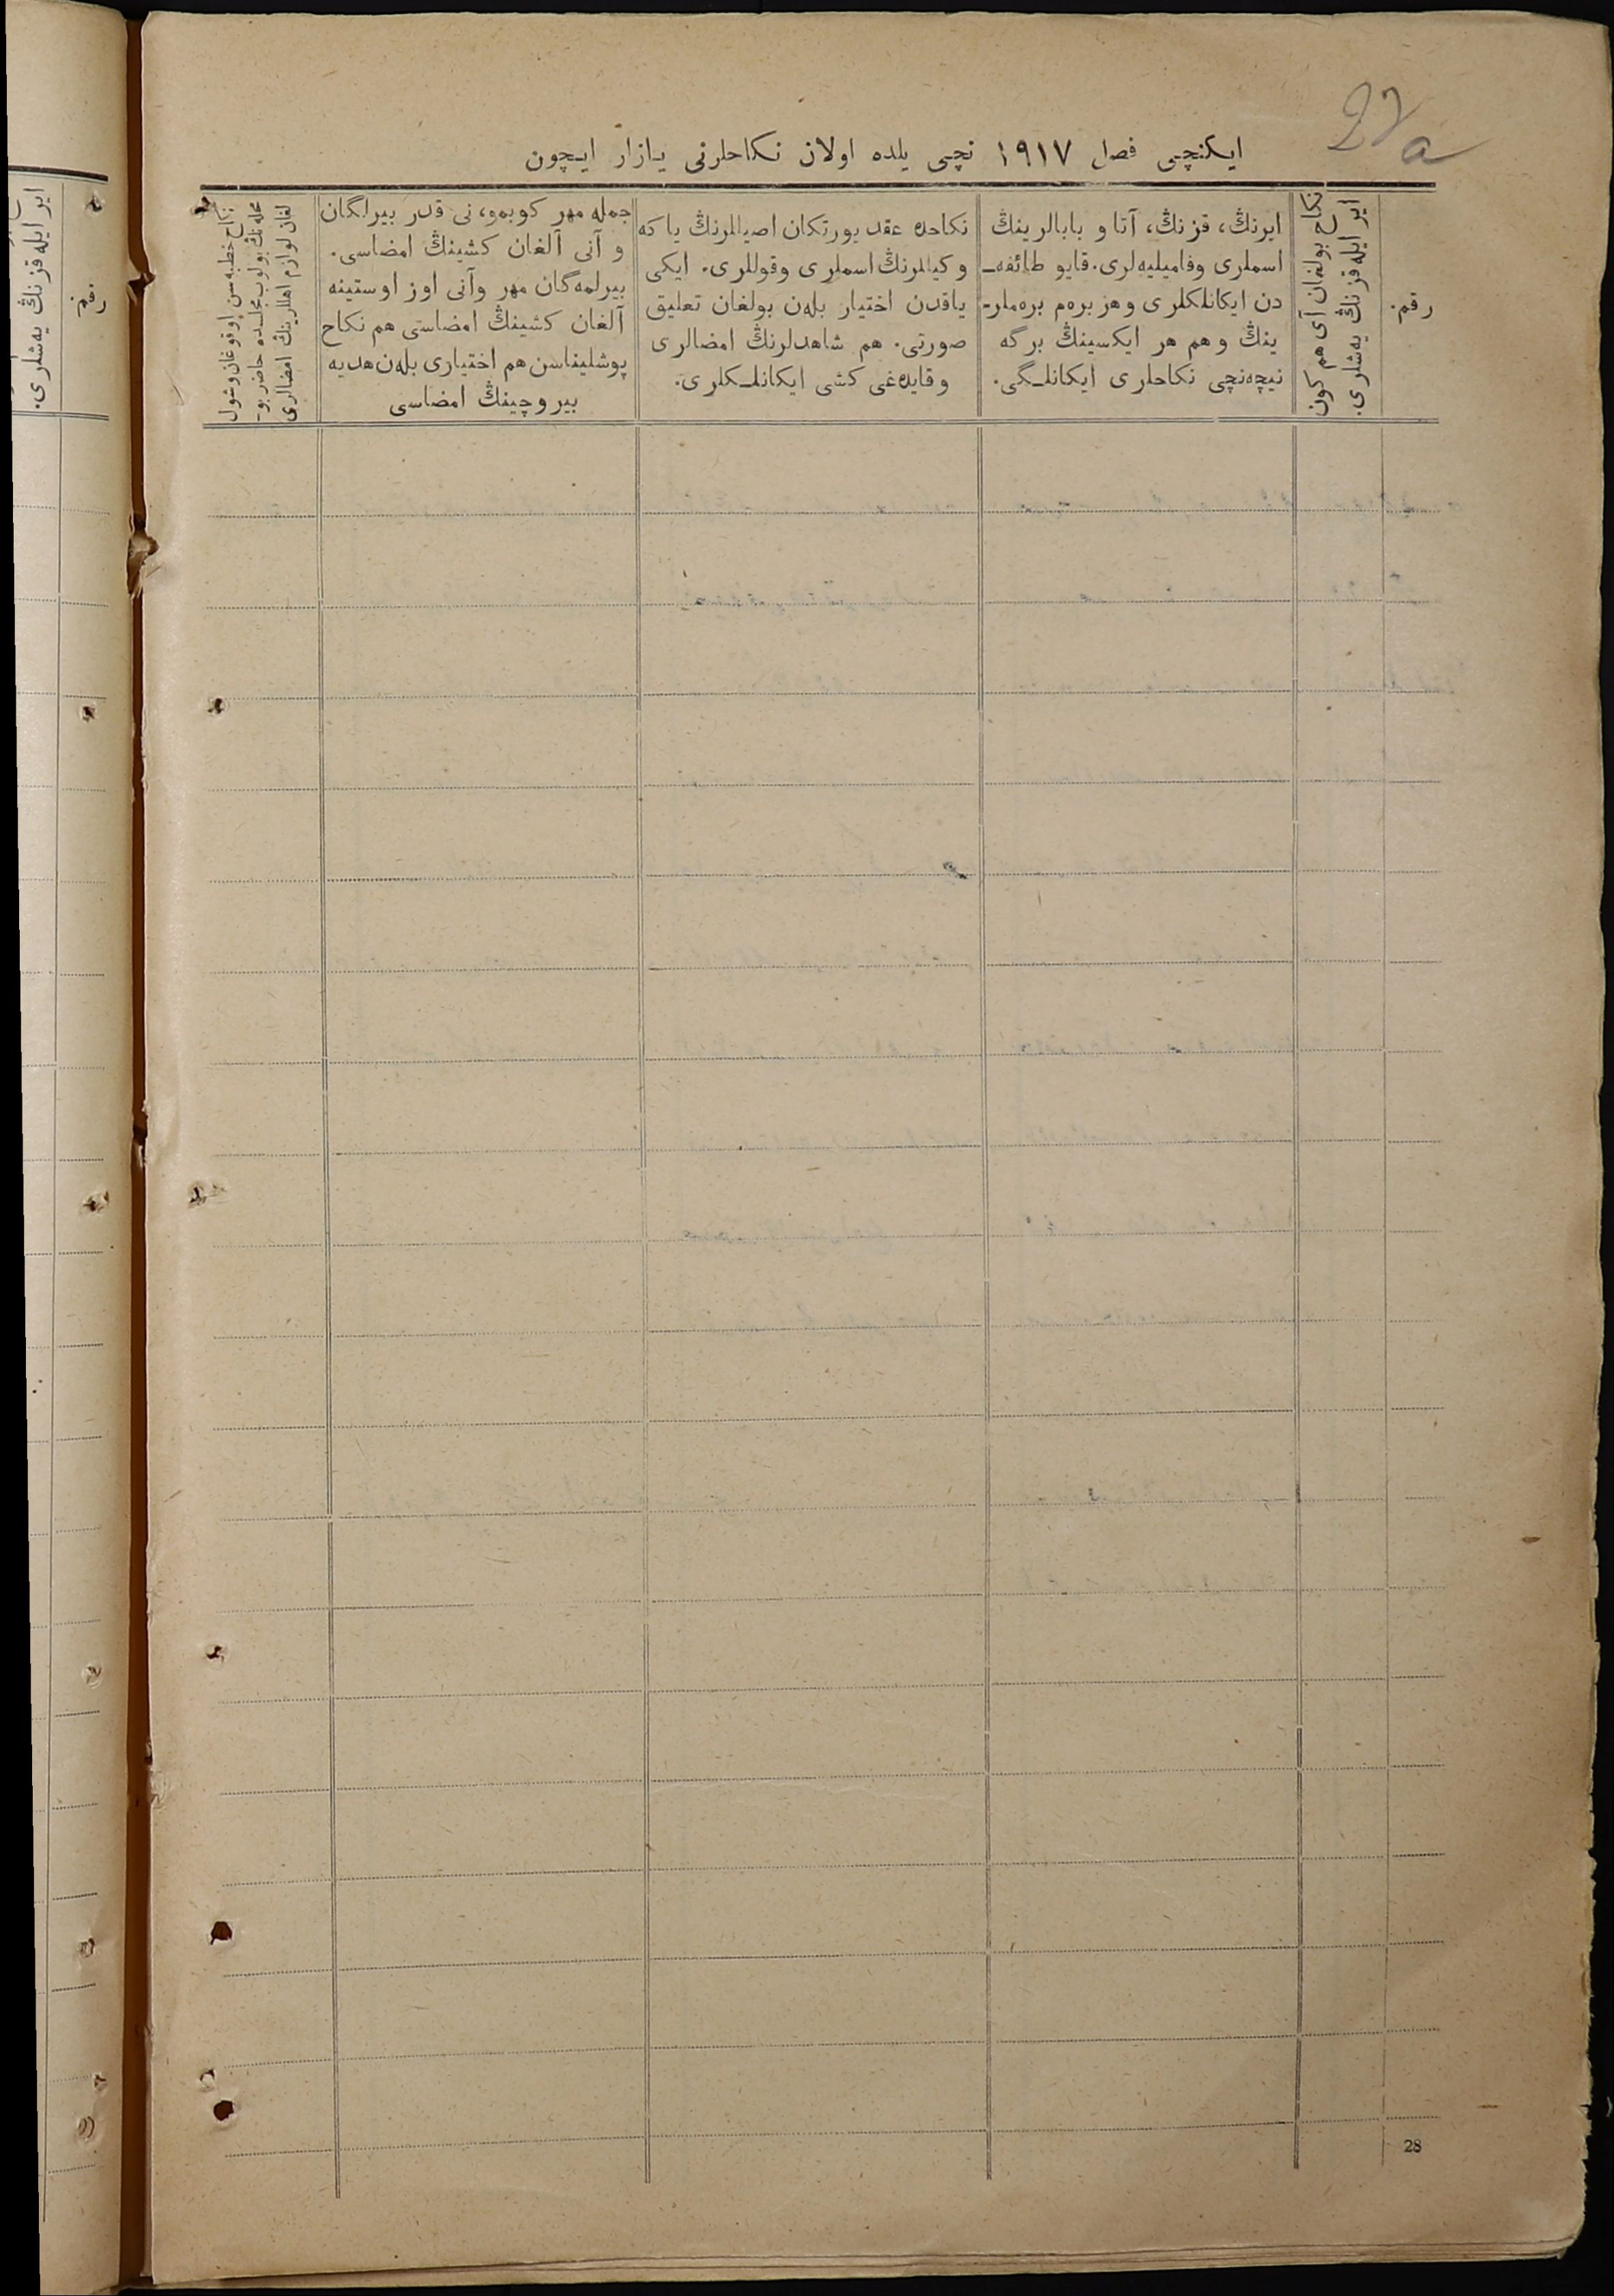 27a
ایکنچی فصل ۱۹۱۷ نچی یلده اولان نکاحلرنی یازار ایچون
رقم.
نکاح بولغان آی هم کون
ایر ایله قزنڭ یه‌شلری.
ایرنڭ، قزنڭ، آتا و بابالرینڭ
اسملری وفامیلیه‌لری. قایو طائفه‌ـ
دن ایکانلکلری وهز بره‌م بره‌ملرـ
ینڭ وهم هر ایکسینڭ برگه
نیچه‌نچی نکاحلری ایکانلـگی.
نکاحده عقد یورتکان اصیللرنڭ یا که
وکیللرنڭ اسملری وقوللری. ایکی
یاقدن اختیار بله‌ن بولغان تعلیق
صورتی. هم شاهدلرنڭ امضالری
وقایده‌غی کشی ایکانلـکلری.
جمله مهر کوبمو، نی قدر بیرلگان
و آنی آلغان کشینڭ امضاسی.
بیرلمه‌گان مهر وآنی اوز اوستینه
آلغان کشینڭ امضاسی هم نکاح
پوشلیناسن هم اختیاری بله‌ن هدیه
بیروچینڭ امضاسی
نکاح خطبه‌سن اوقوغان وشول
محله‌نڭ بولوب مجلسده حاضر بوـ
لغان لوازم اهللرینڭ امضالری
رقم.
ایر ایله قزنڭ یه‌شلری.
28